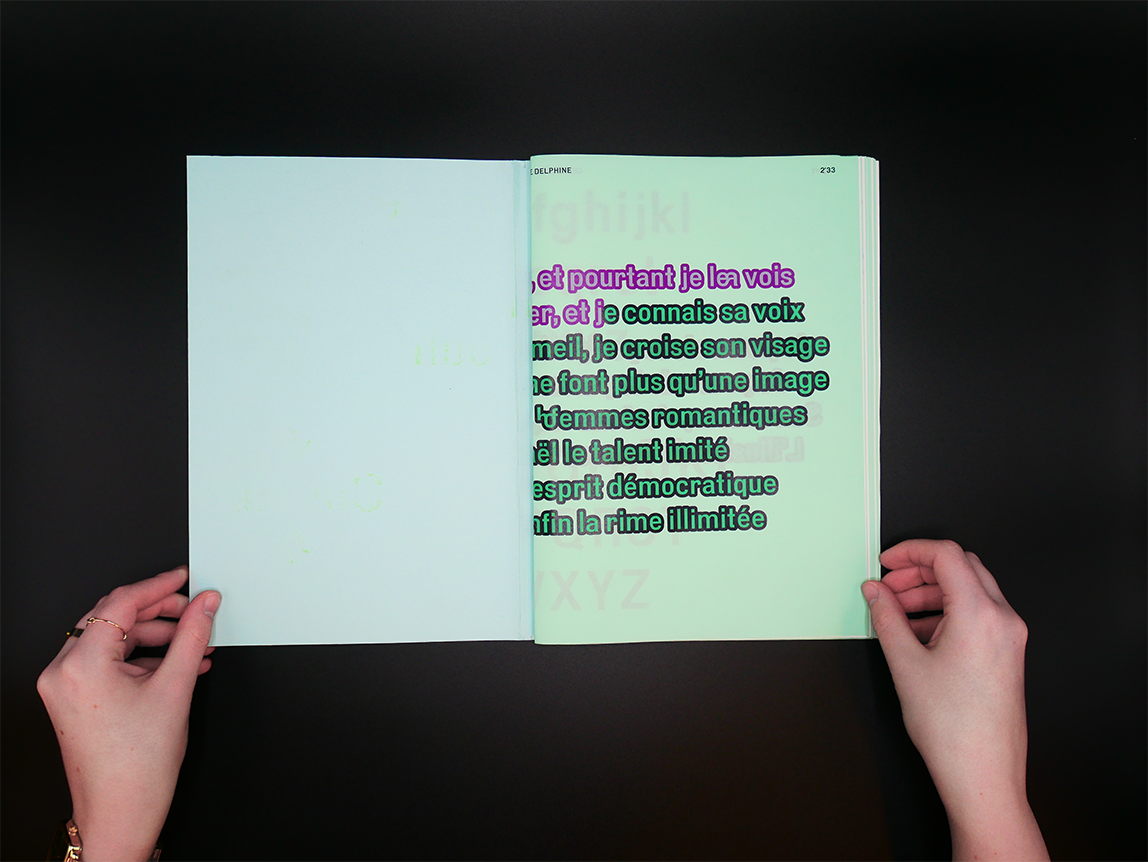 E DELPHINE
2'33
fghijkl
, et pourtant je lea vois
er, et je connais sa voix
meil, je croise son visage
ne font plus qu'une image
femmes romantiques
aël le talent imité
esprit démocratique
nfin la rime illimitée
WXYZ